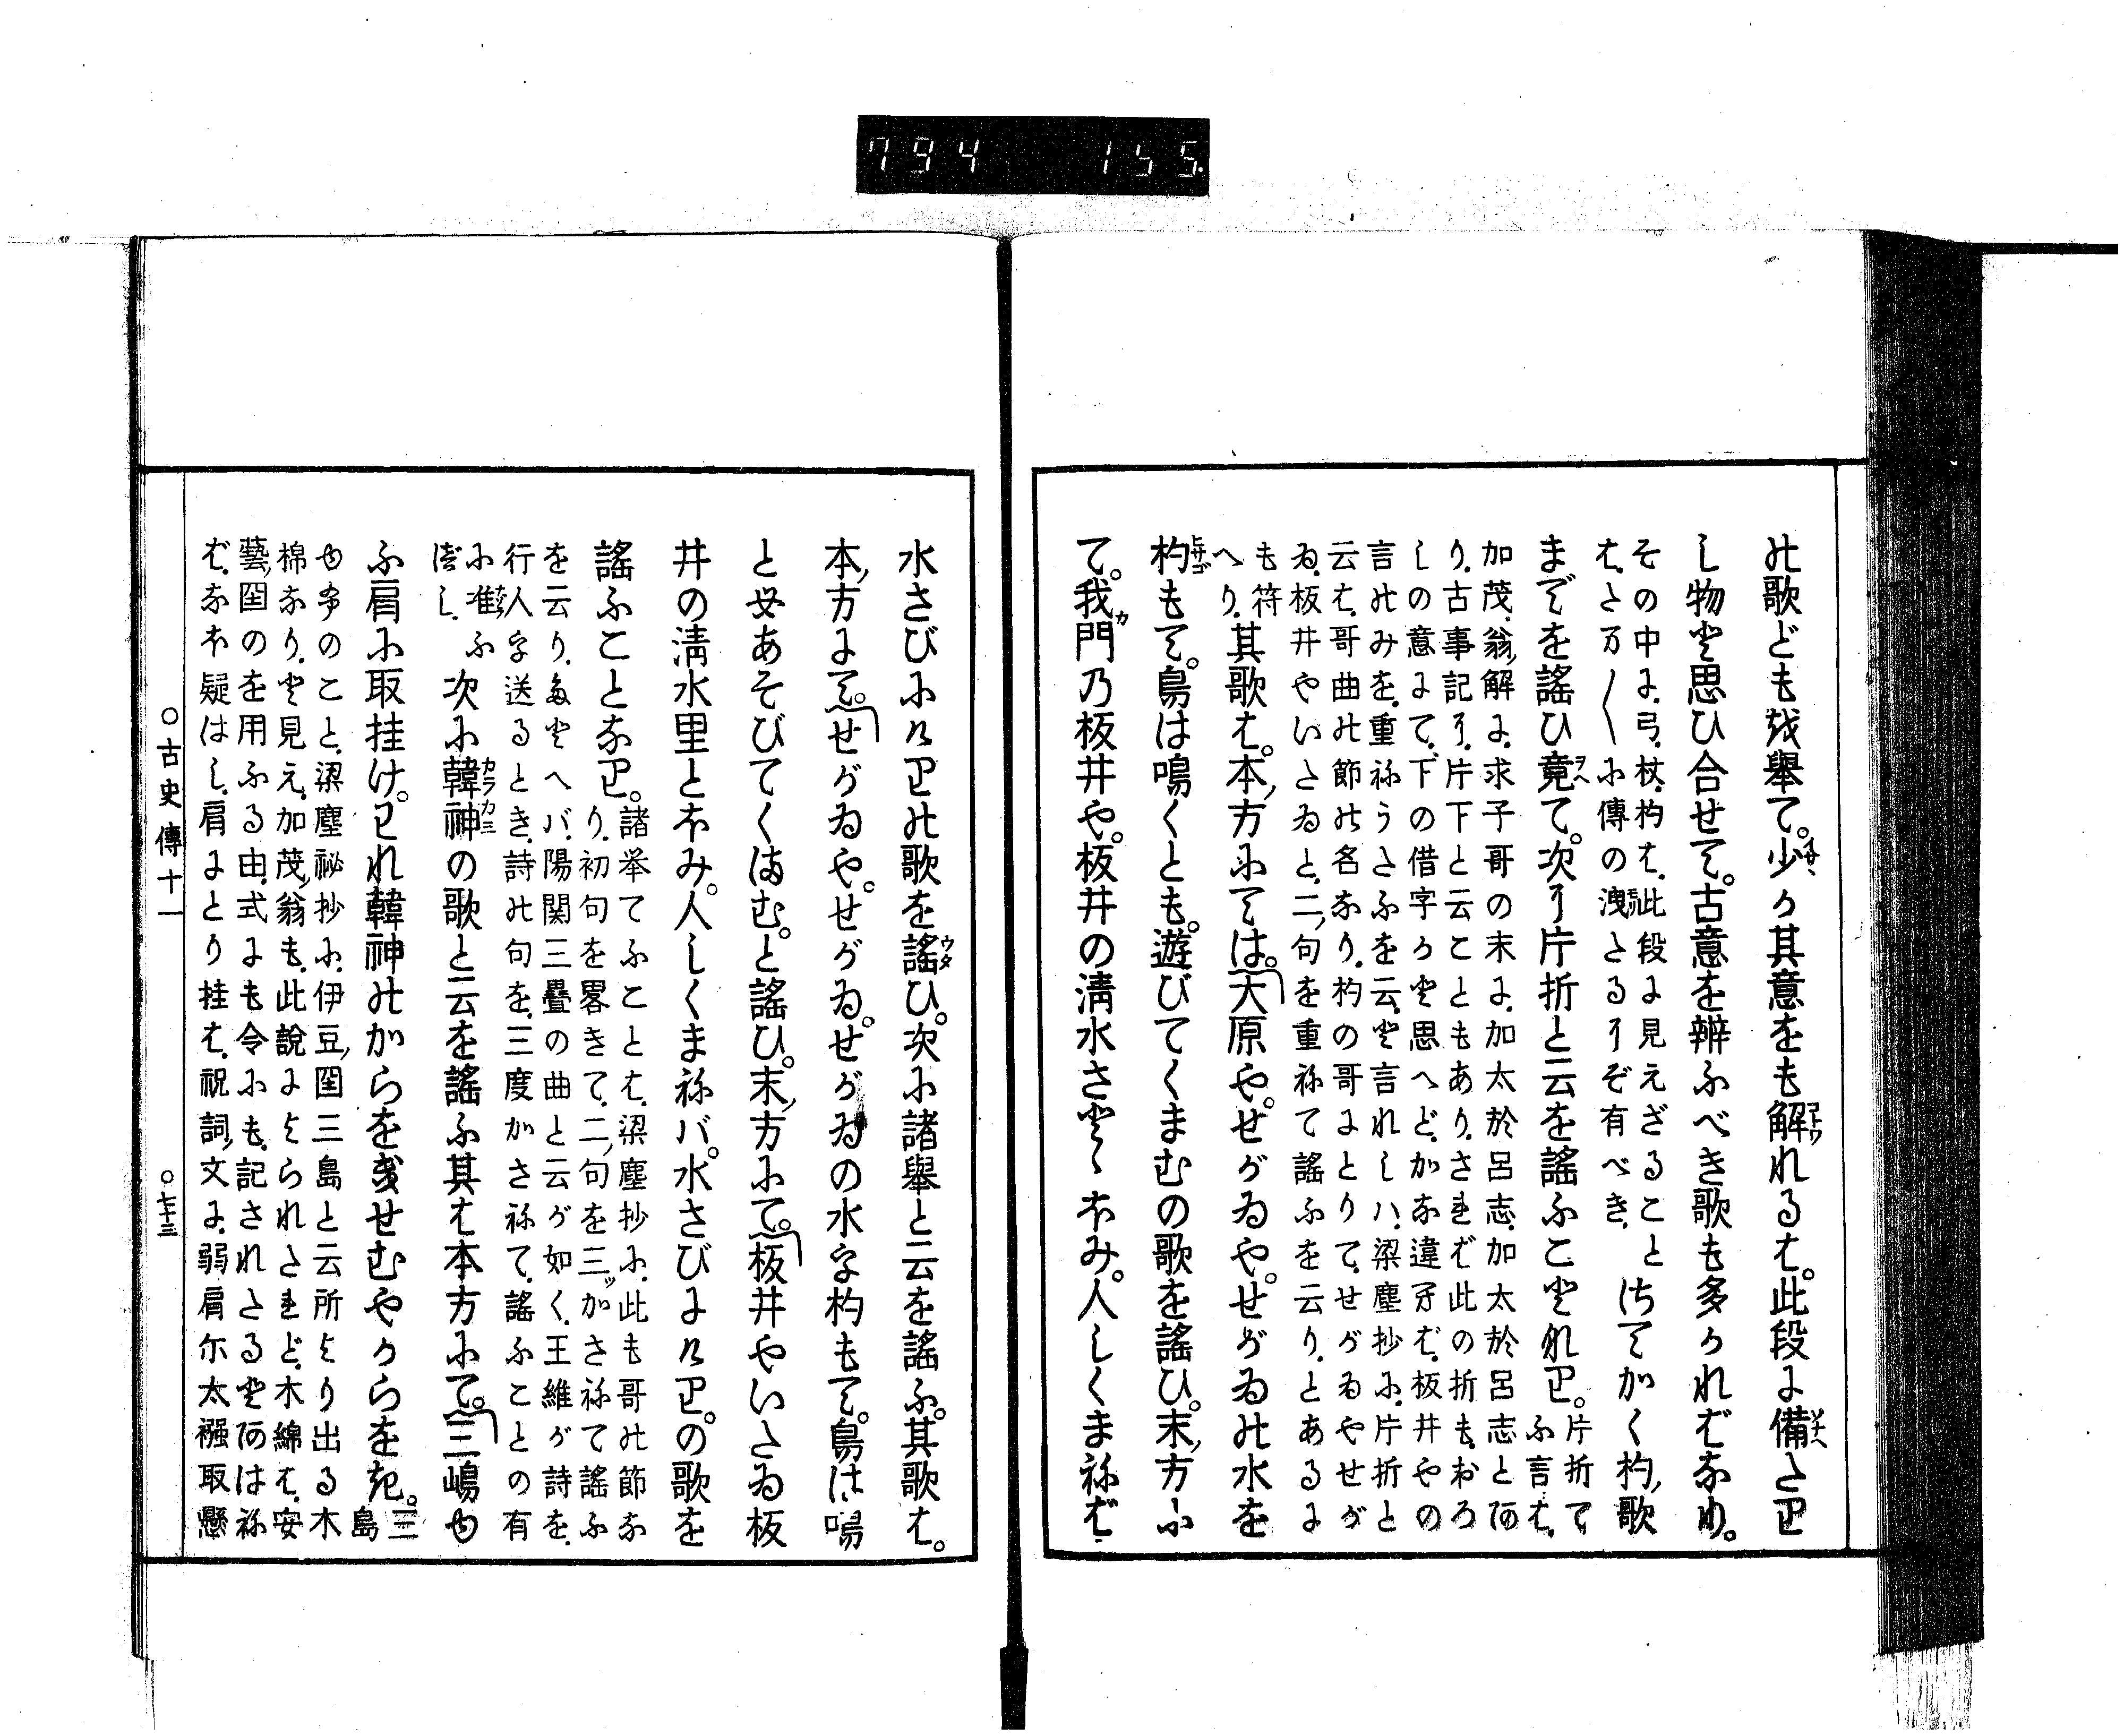 794 155
の歌ども或擧て。少か其意をも解れるは。此段に備たり
し物と思ひ合せて。古意を辨ふべき歌も多かればなり。
その中に、弓、杖、杓は、此段に見えざること
は、さま〴〵に傳の洩たるにぞ有べき、
はてかく杓、歌
までを謠ひ竟て。次に片折と云を謠ふことなり。
片折て
ふ言は、
加茂、翁、解に、求子哥の末に、加太於呂志、加太於呂志とあ
り、古事記に、片下と云こともあり、されば此の折も、おろ
しの意にて、下の借字かと思へど、かな違へば、板井やの
言のみを、重ねうたふを云、と言れしハ、梁塵抄に、片折と
云は、哥曲の節の名なり、杓の哥にとりて、せがゐやせが
ゐ、板井やいたゐと、二句を重ねて謠ふを云り、とあるに
も符
へり、
其歌は。本、方にては。大原や。せがゐや。せがゐの水を
杓もて。鳥は鳴くとも。遊びてくまむの歌を謠ひ。末、方に
て。我門乃板井や。板井の淸水さとゝほみ。人しくまねば
水さびにけりの歌を謠ひ。次に諸擧と云を謠ふ。其歌は。
本、方にて。せがゐや。せがゐ。せがゐの水を杓もて。鳥は鳴
とも。あそびてくまむ。と謠ひ。末、方にて。板井やいたゐ板
井の淸水里とほみ。人しくまねバ。水さびにけり。の歌を
謠ふことなり。
諸挙てふことは、梁塵抄に、此も哥の節な
り、初句を畧きて、二、句を三ッかさねて謠ふ
を云り、たとへバ、陽関三疊の曲と云が如く、王維が詩を、
行人を送るとき、詩の句を、三度かさねて、謠ふことの有
に准ふ
べし、
次に韓神の歌と云を謠ふ其は本方にて。三嶋ゆ
ふ肩に取挂け。われ韓神のからをぎせむやからをぎ。
三
島
ゆふのこと、梁塵祕抄に、伊豆、国三島と云所より出る木
棉なり、と見え、加茂、翁も、此說によられたれど、木綿は、安
藝、国のを用ふる由、式にも令にも、記されたるとあはね
ば、なほ疑はし、肩にとり挂は、祝詞、文に、弱肩尓太襁取懸
○古史傳十一 ○七十三